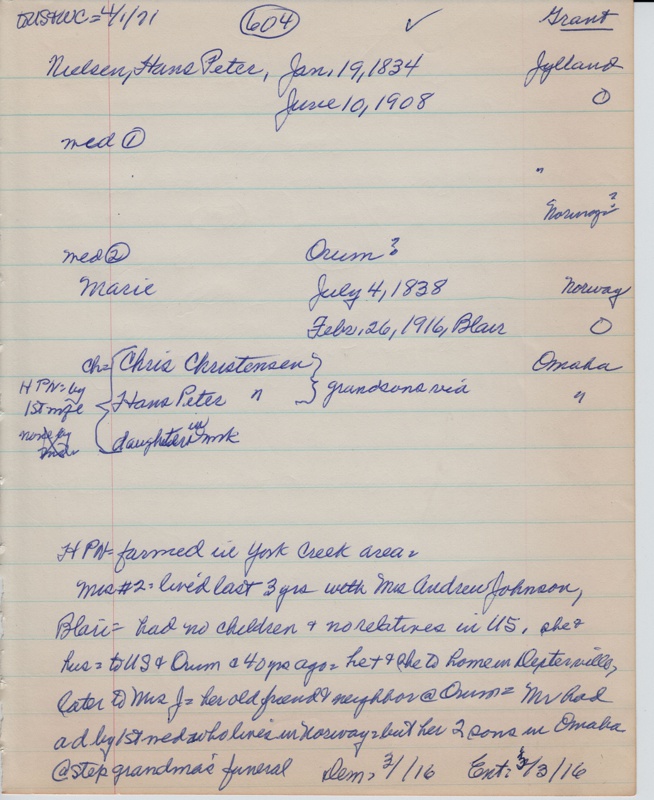 to US & WC = 4/1/71 604 ✓ Grant
Nielsen, Hans Peter, Jan. 19, 1834 Jylland
June 10, 1908 O
med ①
"
Norway?
med ② Orum?
Marie July 4, 1838 Norway
Febr. 26, 1916, Blair O
ch = Chris Christensen Omaha
HPN = by Hans Peter " grandsons via "
1st mge
none by daughter in
HPN = farmed in York Creek area =
Mrs #2 = lived last 3 yrs with Mrs Andrew Johnson,
Blair = had no children & no relatives in US, she &
hus = to US & Orum c 40 yrs ago = he & she to home in
later to Mrs J = her old friend & neighbor @ Orum = Mr had
a d by 1st med who lives in Norway = but her 2 sons in Omaha
@ step grandma's funeral Dem = 3/1/16 Ent: 3/3/16